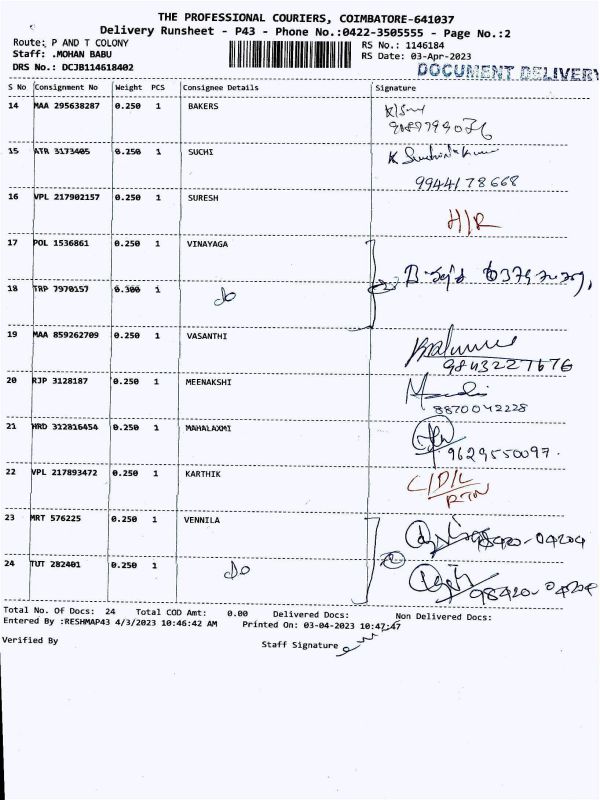 THE PROFESSIONAL COURIERS, COIMBATORE-641037
Delivery Runsheet - P43 - Phone No.:0422-3505555 - Page No.:2
Route: P AND T COLONY
RS No.: 1146184
Staff: .MOHAN BABU
RS Date: 03-Apr-2023
DRS No.: DCJB114618402
DOCUMENT DELIVERY
S No Consignment No Weight PCS Consignee Details Signature
14 MAA 295638287 0.250 1 BAKERS
15 ATR 3173405 0.250 1 SUCHI
9944178668
16 VPL 217902157 0.250 1 SURESH
H/R
17 POL 1536861 0.250 1 VINAYAGA
18 TRP 7970157 0.300 1 do
19 MAA 859262709 0.250 1 VASANTHI
9843227676
20 RJP 3128187 0.250 1 MEENAKSHI
8870042228
21 HRD 312816454 0.250 1 MAHALAXMI
9629550097.
22 VPL 217893472 0.250 1 KARTHIK C/D/L
RTN
23 MRT 576225 0.250 1 VENNILA 98420-04204
24 TUT 282401 0.250 1 do 98420-04204
Total No. Of Docs: 24 Total COD Amt: 0.00 Delivered Docs: Non Delivered Docs:
Entered By :RESHMAP43 4/3/2023 10:46:42 AM Printed On: 03-04-2023 10:47:47
Verified By Staff Signature